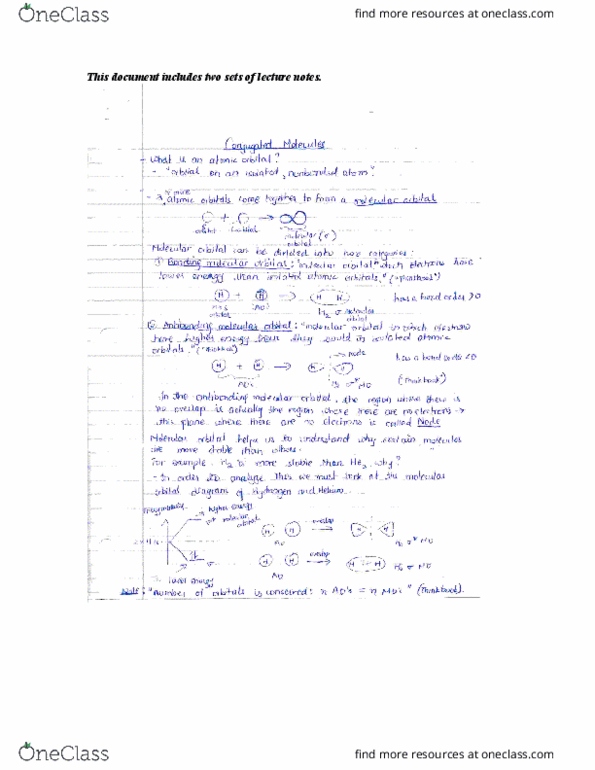 OneClass
find more resources at oneclass.com
This document includes two sets of lecture notes.
Conjugated Molecules
- What is an atomic orbital?
- "orbital on an isolated, nonbonded atom".
or more
atomic orbitals come together to form a molecular orbital
+
orbital orbital molecular (σ)
orbital
Molecular orbital can be divided into two categories:
① Bonding molecular orbital: "molecular orbital which electrons have
lower energy than isolated atomic orbitals."
H + H → H H has a bond order > 0
H₂ σ molecular
orbital
② Antibonding molecular orbital: "molecular orbital in which electrons
have higher energy than they would in isolated atomic
orbitals."
Node has a bond order <0
H + H → H H (Thinkbook)
AO's σ* MO
In the antibonding molecular orbital, the region where there is
no overlap is actually the region where there are no electrons →
this plane where there are no electrons is called Node
Molecular orbital helps us to understand why certain molecules
are more stable than others.
For example H₂ is more stable than He₂ why?
- In order to analyze this we must look at the molecular
orbital diagram of Hydrogen and Helium.
higher energy
molecular
orbital
H H overlap H H
AO σ* MO
H H overlap H H
AO H₂ σ MO
lower energy
Note: "number of orbitals is conserved: n AO's = n MO's" (Thinkbook).
OneClass
find more resources at oneclass.com